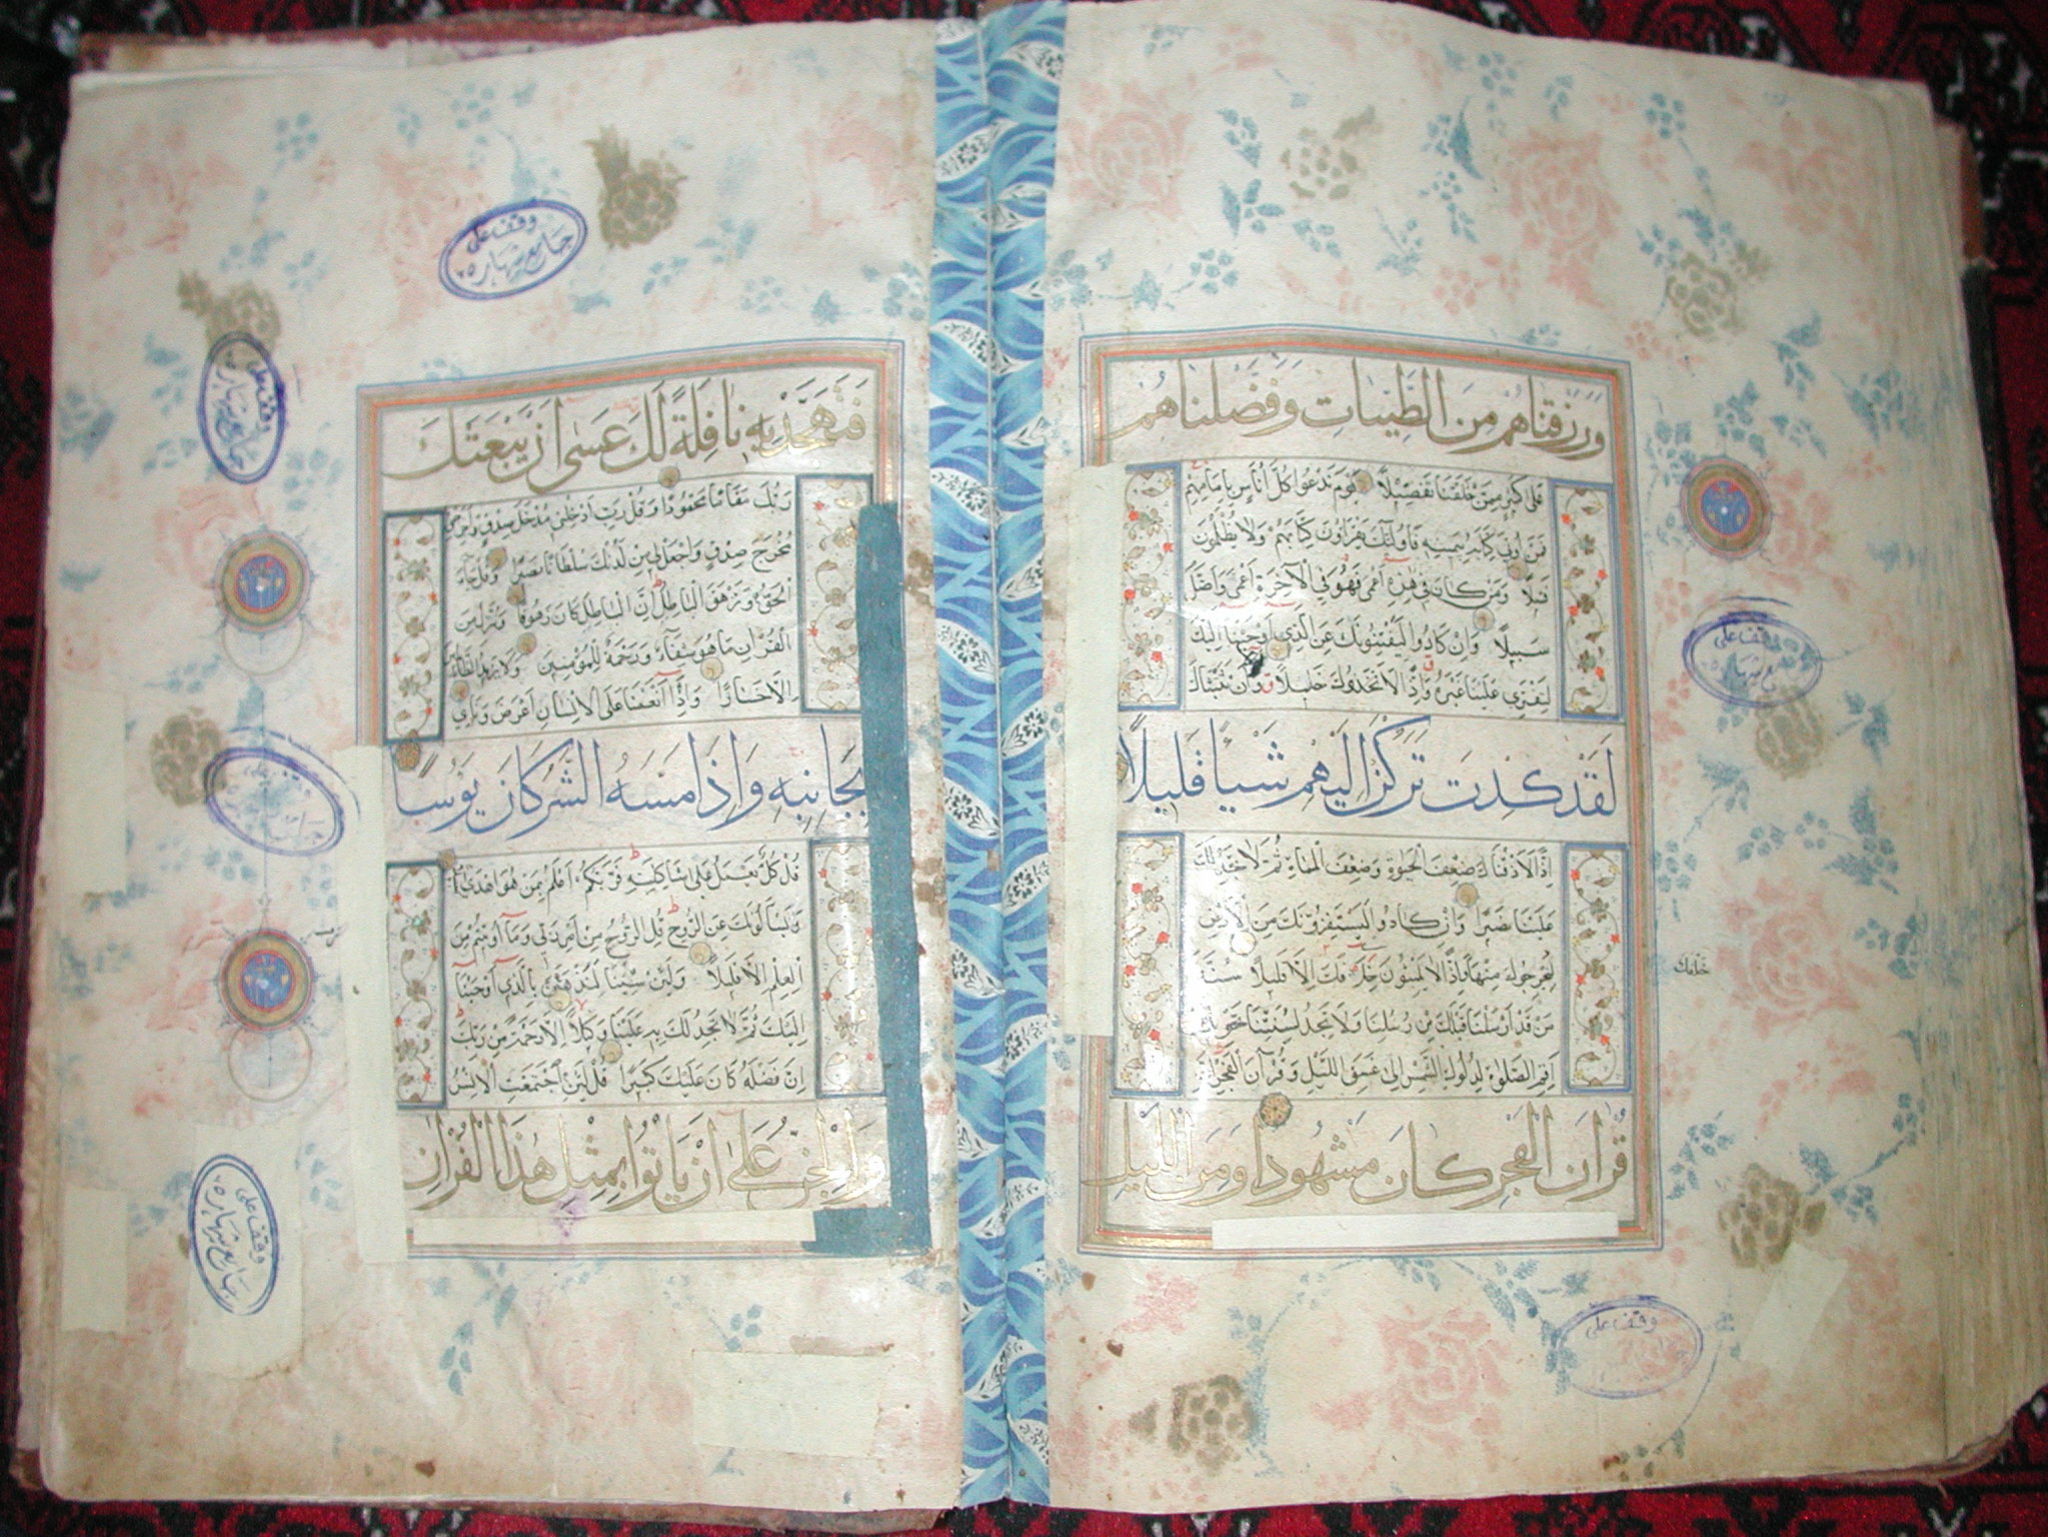 ورزقناهم من الطيبات وفضلناهم
على كثير ممن خلقنا تفضيلا يوم ندعوا كل أناس بإمامهم
فمن أوتي كتابه بيمينه فأولئك يقرؤن كتابهم ولا يظلمون
فتيلا ومن كان في هذه أعمى فهو في الآخرة أعمى وأضل
سبيلا وإن كادوا ليفتنونك عن الذي أوحينا إليك
لتفتري علينا غيره وإذا لاتخذوك خليلا ولولا أن ثبتناك
لقد كدت تركن إليهم شيئا قليلا
إذا لأذقناك ضعف الحيوة وضعف المماة ثم لا تجد لك
علينا نصيرا وإن كادوا ليستفزونك من الأرض
ليخرجوك منها وإذا لا يلبثون خلافك إلا قليلا سنة
من قد أرسلنا قبلك من رسلنا ولا تجد لسنتنا تحويلا
أقم الصلوة لدلوك الشمس إلى غسق الليل وقرآن الفجر إن
قرآن الفجر كان مشهودا ومن الليل
خلفك
وقف على
جامع شهاره
وقف على
فتهجد به نافلة لك عسى أن يبعثك
ربك مقاما محمودا وقل رب أدخلني مدخل صدق وأخرجني
مخرج صدق واجعل لي من لدنك سلطانا نصيرا وقل جاء
الحق وزهق الباطل إن الباطل كان زهوقا وننزل من
القرآن ما هو شفاء ورحمة للمؤمنين ولا يزيد الظالمين
إلا خسارا وإذا أنعمنا على الإنسان أعرض ونآى
بجانبه وإذا مسه الشر كان يؤسا
قل كل يعمل على شاكلته فربكم أعلم بمن هو أهدى
ويسألونك عن الروح قل الروح من أمر ربي وما أوتيتم من
العلم إلا قليلا ولئن شئنا لنذهبن بالذي أوحينا
إليك ثم لا تجد لك به علينا وكيلا إلا رحمة من ربك
إن فضله كان عليك كبيرا قل لئن اجتمعت الإنس
والجن على أن يأتوا بمثل هذا القرآن
وقف على
جامع شهاره
وقف على
جامع شهاره
وقف على
جامع شهاره